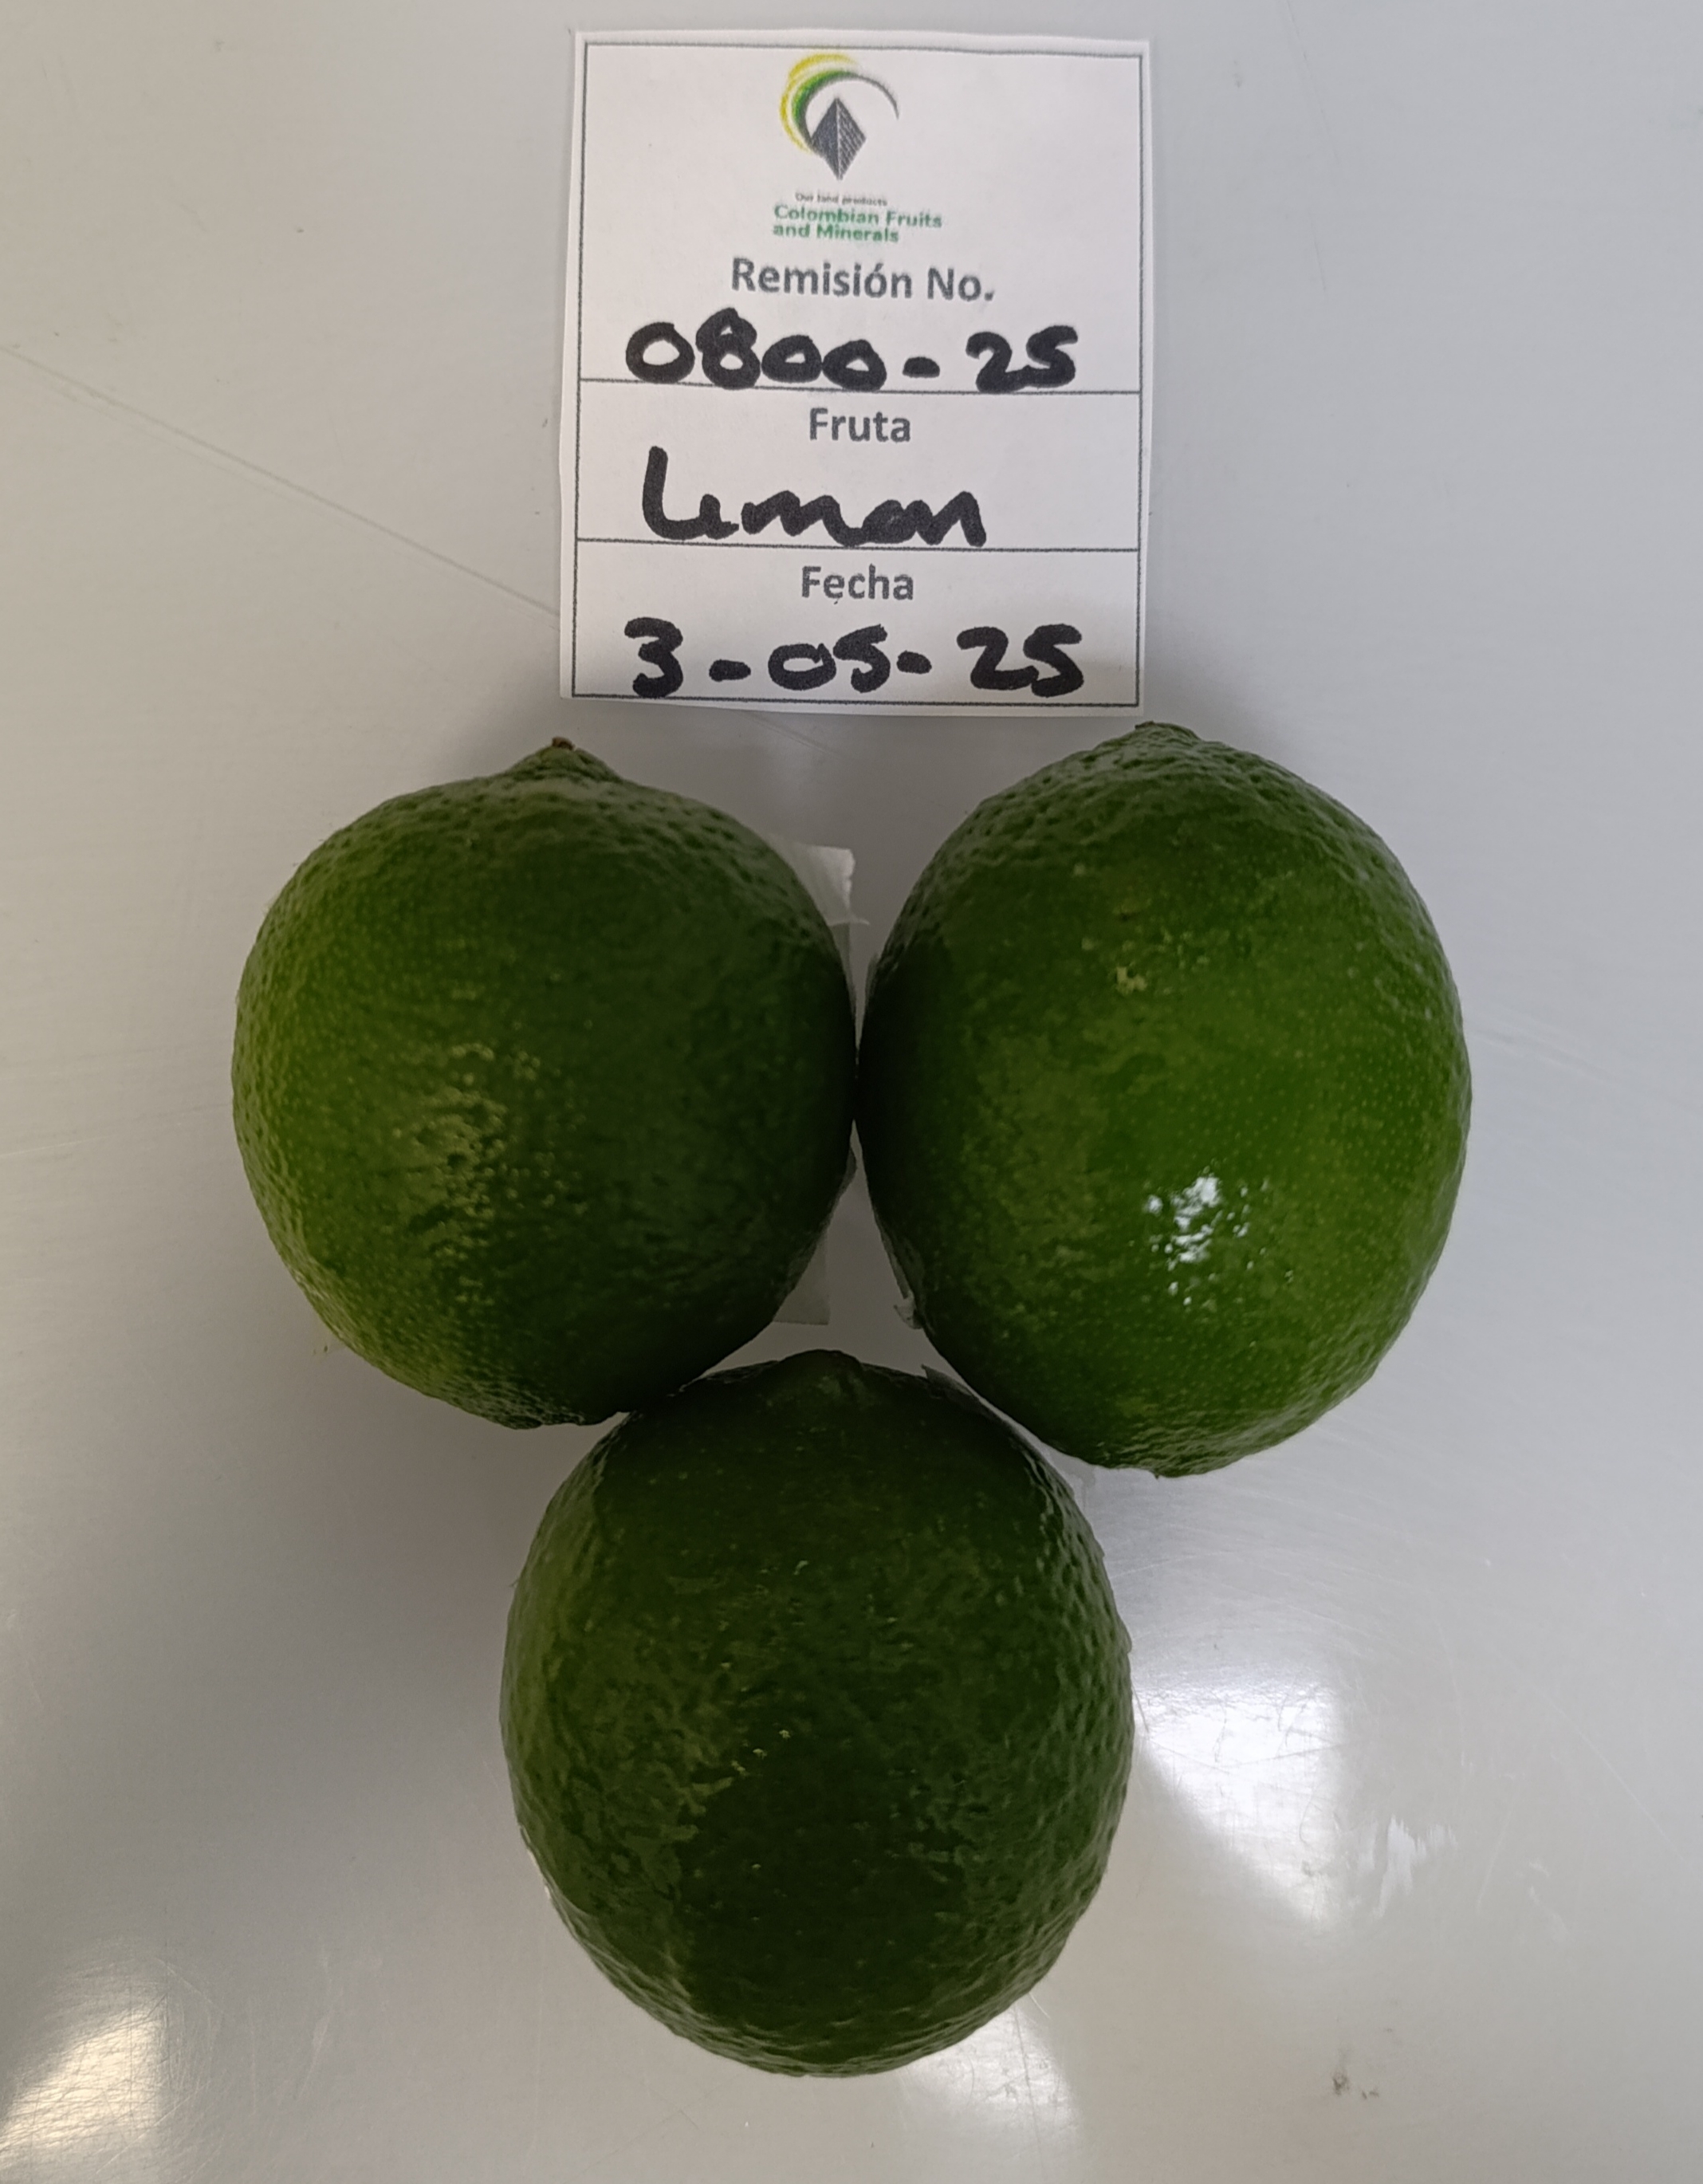 Our land products
Colombian Fruits
and Minerals
Remisión No.
0800-25
Fruta
Limon
Fecha
3-05-25